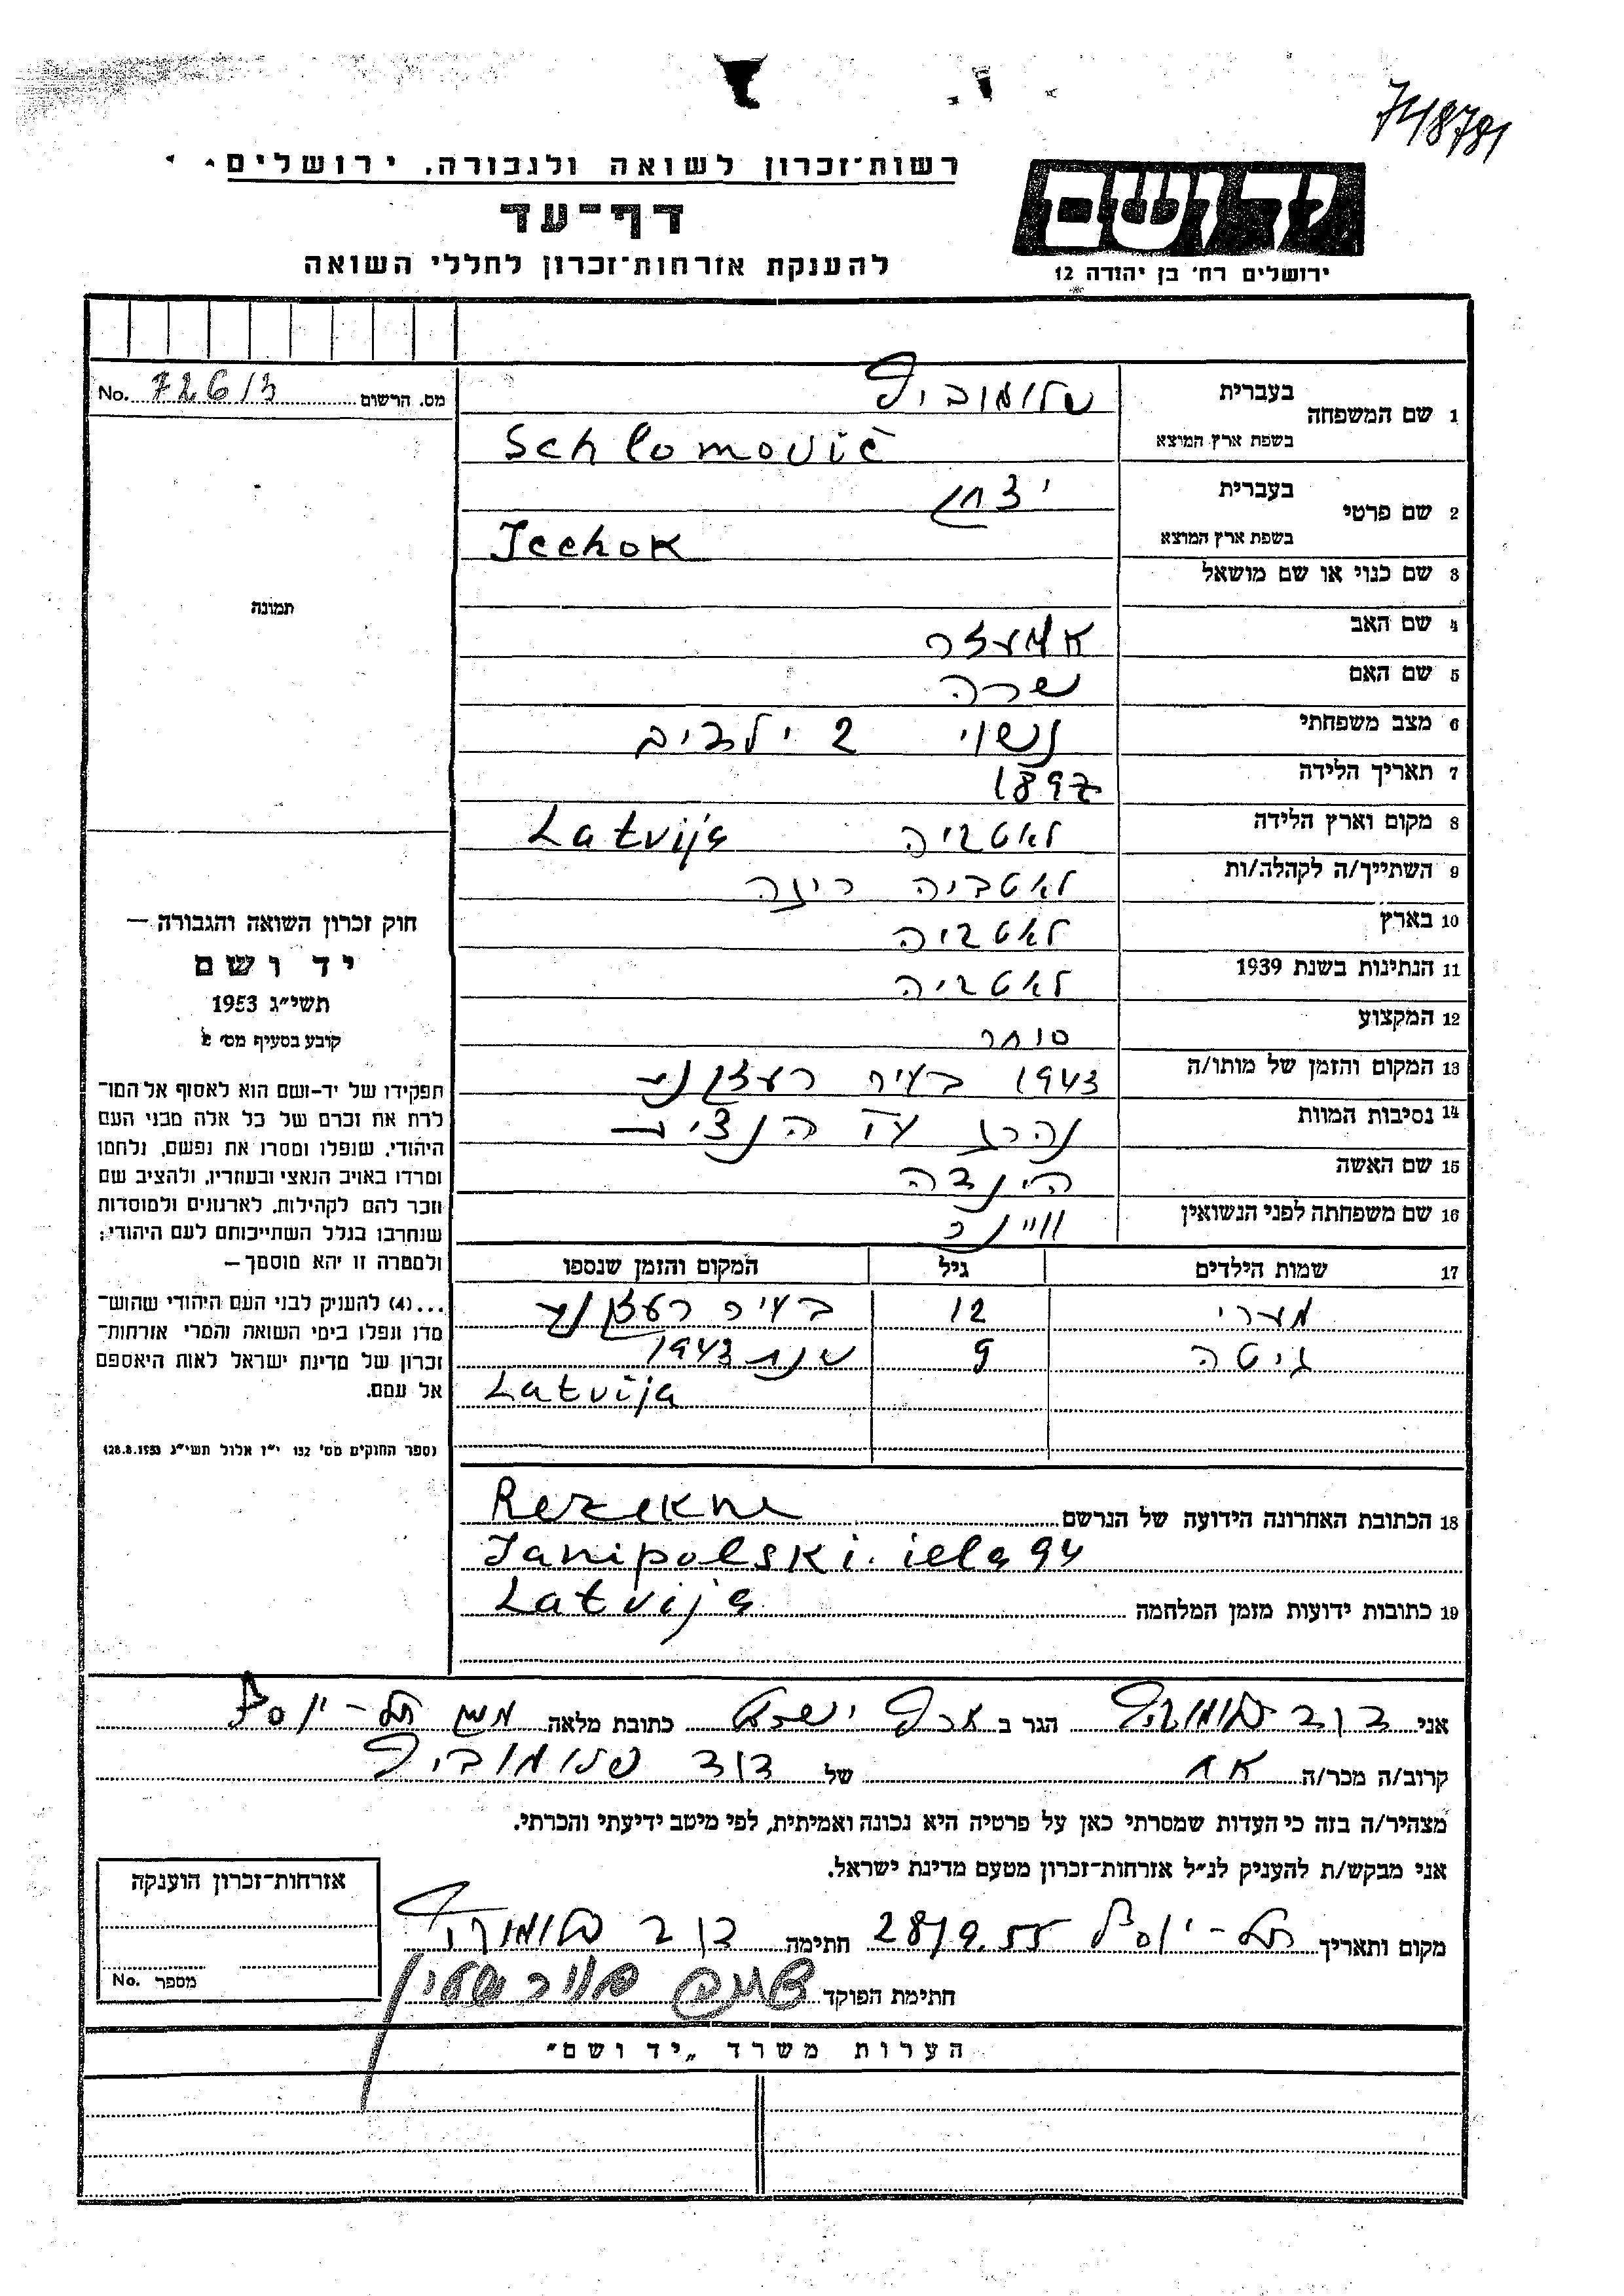 748781
רשות־זכרון לשואה ולגבורה, ירושלים
דף־עד
להענקת אזרחות־זכרון לחללי השואה
יד ושם
ירושלים רח׳ בן יהודה 12
מס. הרשום 726/3 No.
1 שם המשפחה בעברית שלומוביץ
בשפת ארץ המוצא Schlomovič
2 שם פרטי בעברית יצחק
בשפת ארץ המוצא Icchok
3 שם כנוי או שם מושאל
4 שם האב אלעזר
5 שם האם שרה
6 מצב משפחתי נשוי 2 ילדים
7 תאריך הלידה 1897
8 מקום וארץ הלידה לאטביה Latvija
9 השתייך/ה לקהלה/ות לאטביה ריגה
10 בארץ לאטביה
11 הנתינות בשנת 1939 לאטביה
12 המקצוע סוחר
13 המקום והזמן של מותו/ה 1943 בעיר רעזקנע
14 נסיבות המוות נהרג ע״י הנצים
15 שם האשה הינדה
16 שם משפחתה לפני הנשואין
17 שמות הילדים גיל המקום והזמן שנספו
מערי 12 בעיר רעזקנע
גיטה 9 שנת 1943
Latvija
תמונה
חוק זכרון השואה והגבורה —
יד ושם
תשי״ג 1953
קובע בסעיף מס׳ 2
תפקידו של יד-ושם הוא לאסוף אל המו־
לדת את זכרם של כל אלה מבני העם
היהודי, שנפלו ומסרו את נפשם, נלחמו
ומרדו באויב הנאצי ובעוזריו, ולהציב שם
וזכר להם לקהילות, לארגונים ולמוסדות
שנחרבו בגלל השתייכותם לעם היהודי;
ולמטרה זו יהא מוסמך —
...(4) להעניק לבני העם היהודי שהוש־
מדו ונפלו בימי השואה והמרי אזרחות־
זכרון של מדינת ישראל לאות היאספם
אל עמם.
(ספר החוקים מס׳ 132 י״ז אלול תשי״ג 28.8.1953)
18 הכתובת האחרונה הידועה של הנרשם Rezekne
Janipolski. iela 94
19 כתובות ידועות מזמן המלחמה Latvija
אני דוד שלומוביץ הגר ב ארץ ישראל כתובת מלאה תל-יוסף
קרוב/ה מכר/ה אח של דוד שלומוביץ
מצהיר/ה בזה כי העדות שמסרתי כאן על פרטיה היא נכונה ואמיתית, לפי מיטב ידיעתי והכרתי.
אני מבקש/ת להעניק לנ״ל אזרחות-זכרון מטעם מדינת ישראל.
מקום ותאריך תל-יוסף 28/9.55 חתימה דוד שלומוביץ
חתימת הפוקד
אזרחות-זכרון הוענקה
מספר No.
הערות משרד „יד ושם״